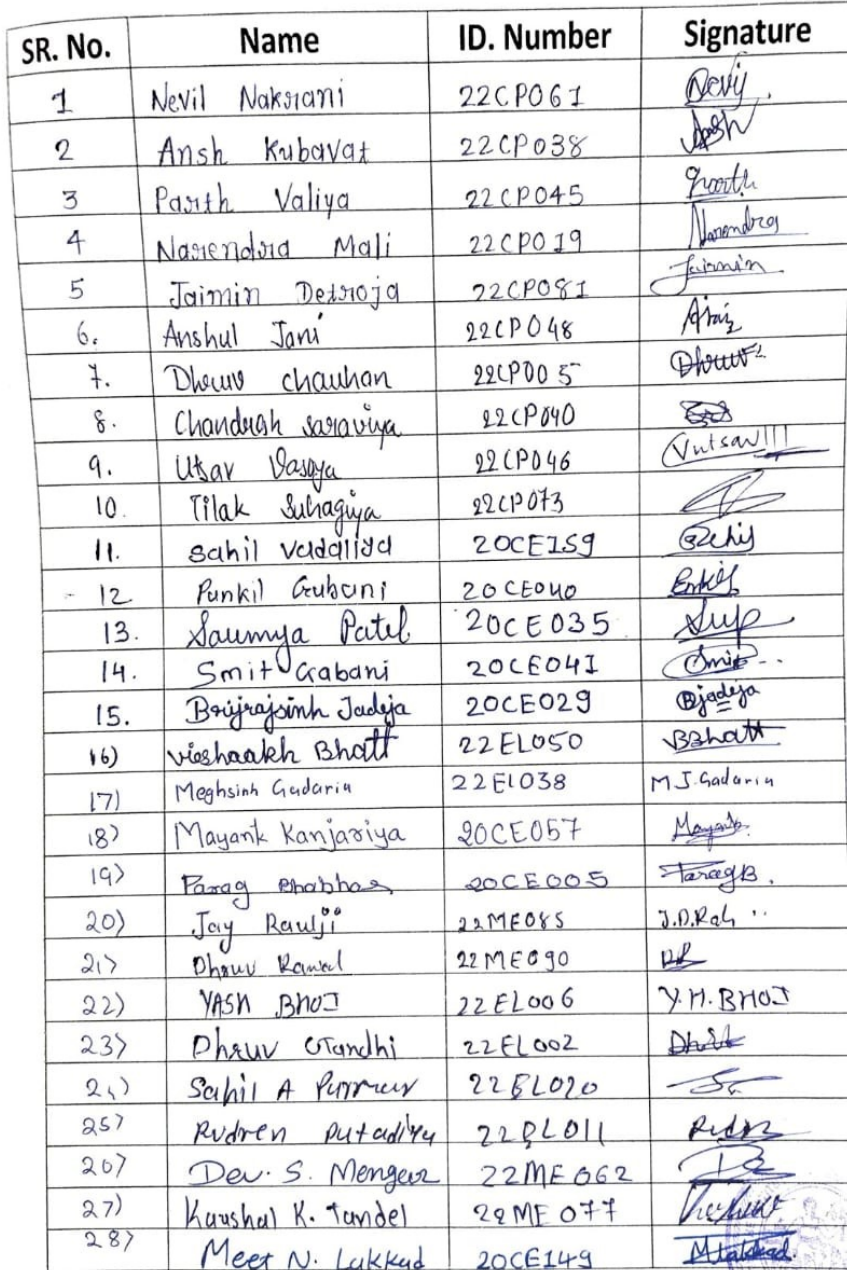 SR. No. Name ID. Number Signature
1 Nevil Nakrani 22CP061 Nevil
2 Ansh Kubavat 22CP038 Ansh
3 Parth Valiya 22CP045 Parth
4 Narendra Mali 22CP019 Narendra
5 Jaimin Detroja 22CP081 Jaimin
6. Anshul Jani 22CP048
7. Dhruv chauhan 22CP005 Dhruv
8. Chandresh saraviya 22CP040
9. Utsav Vasoya 22CP046 Vutsav
10. Tilak Suhagiya 22CP073
11. Sahil Vadaliya 20CE159
12 Punkil Gubani 20CE040
13. Saumya Patel 20CE035
14. Smit Gabani 20CE041 Smit
15. Brijrajsinh Jadeja 20CE029 Bjadeja
16) vieshaakh Bhatt 22EL050 VBBhatt
17) Meghsinh Gadaria 22EL038 M J. Gadaria
18) Mayank Kanjariya 20CE057 Mayank
19) Parag Bhabhor 20CE005 ParagB.
20) Jay Raulji 22ME085
21) Dhruv Rawal 22ME090
22) YASH BHOJ 22EL006 Y. H. BHOJ
23) Dhruv Gandhi 22EL002
24) Sahil A Parmar 22EL020
25) Rudren 22EL011
26) Dev. S. Menger 22ME062
27) Kaushal K. Tandel 22ME077
28) Meet N. Lukkad 20CE149